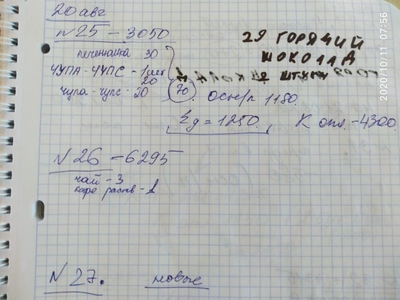 20 авг
N 25 - 3050
печенюшка 30
ЧУПА-ЧУПС - 1 шт
20
чупа-чупс - 20
70
29 ГОРЯЧИЙ
ШОКОЛАД
ШТУКИ
осн/л 1180.
Σg = 1250.
К опл. - 4300.
N 26 - 6295
чай - 3
кофе раств - 1
N 27. новые
2020/10/11 07:56